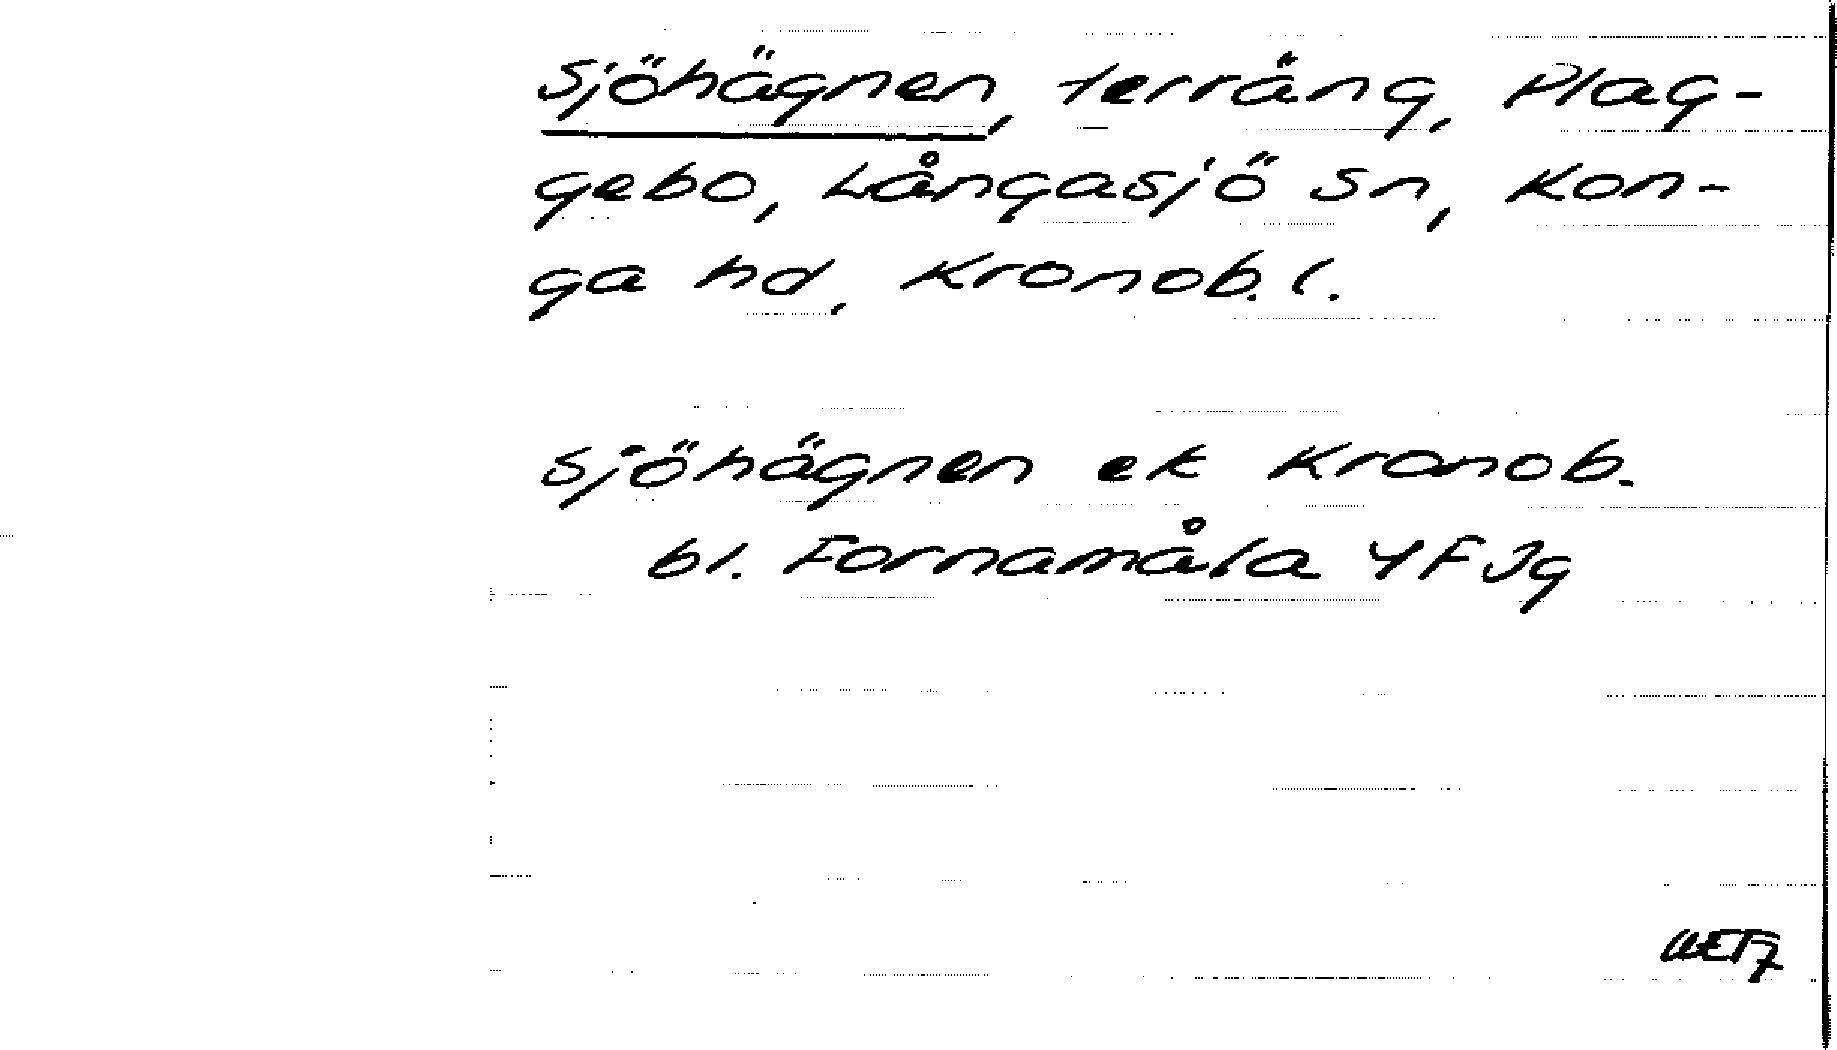 Sjöhägnen, terräng, Plag-
gebo, Långasjö sn, Kon-
ga hd, Kronob. l.
Sjöhägnen ek Kronob.
bl. Fornamåla 4F Jg